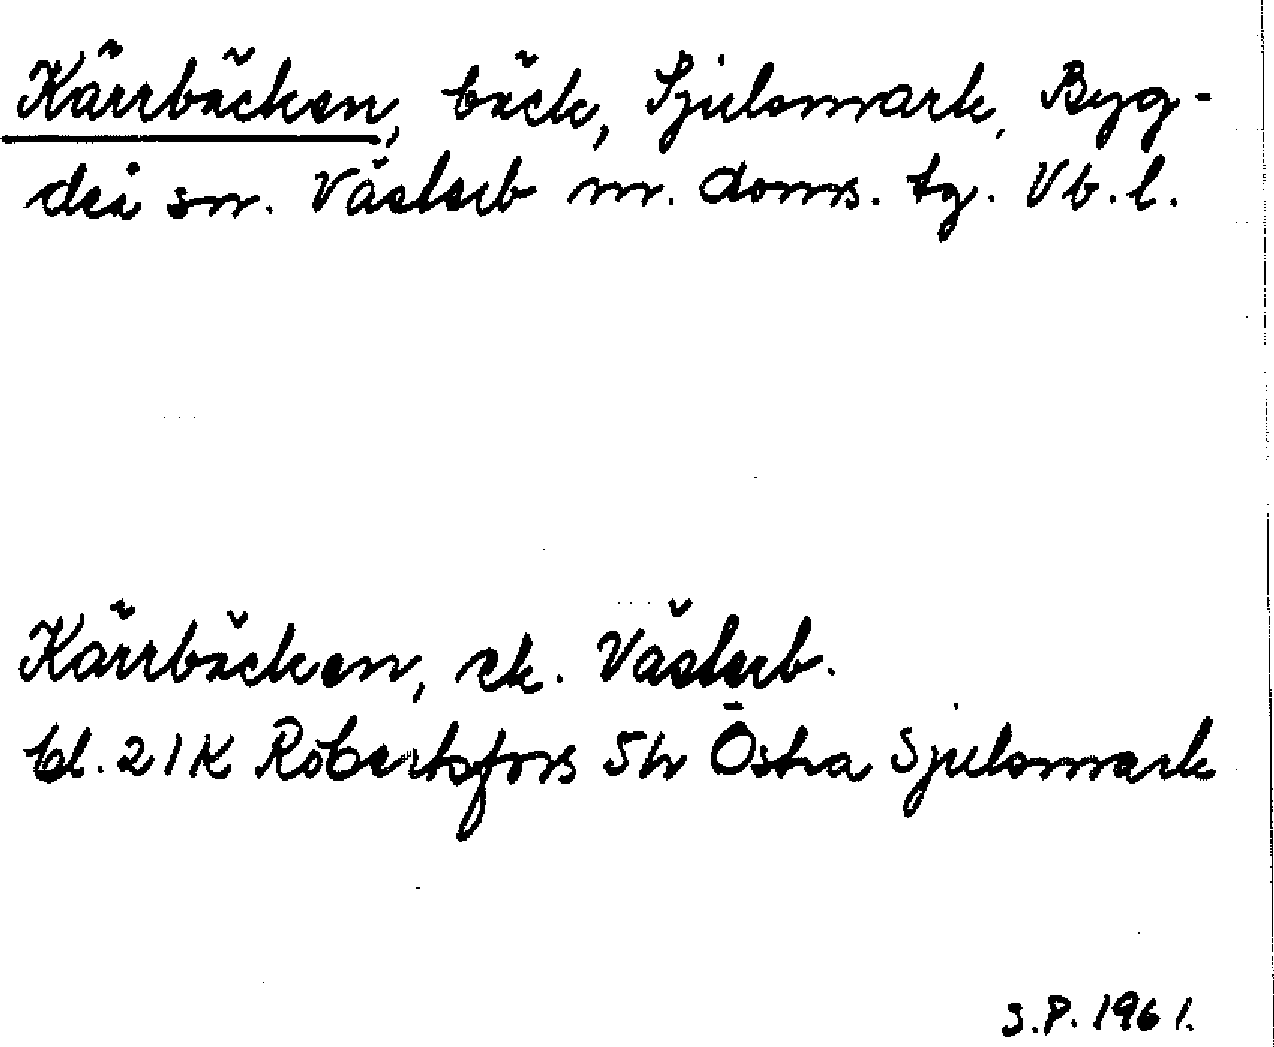 Kärrbäcken, bäck, Sjulsmark, Byg-
deå sn. Västerb n. doms. tg. Vb. l.
Kärrbäcken, ek. Västerb.
bl. 21K Robertsfors 5h Östra Sjulsmark
S.P. 1961.